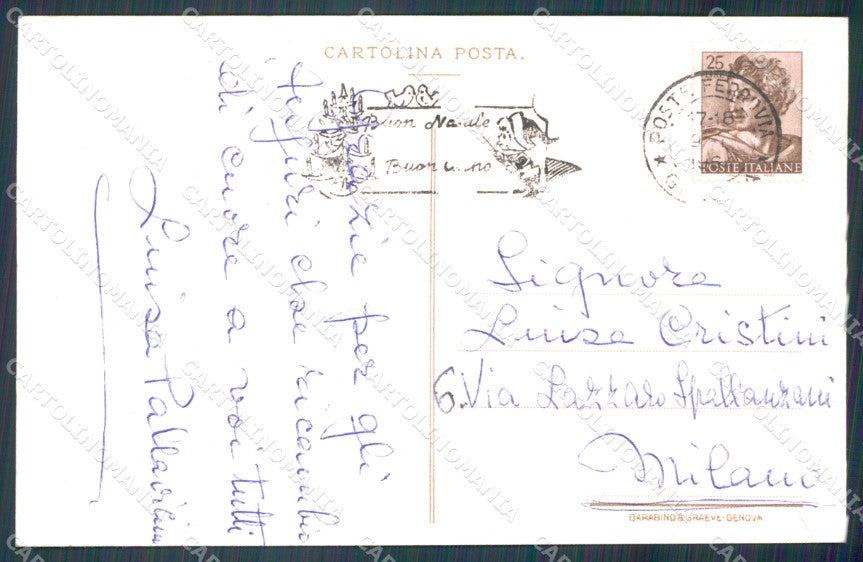 CARTOLINA POSTA.
25
POSTE FERROVIA
17-18
POSTE ITALIANE
Buon Natale
Buon anno
Grazie per gli
Auguri che ricambio
di cuore a voi tutti
Luisa Pallavicini
Signora
Luisa Cristini
6. Via Lazzaro Spallanzani
Milano
BARABINO & GRAEVE-GENOVA
CARTOLINOMANIA